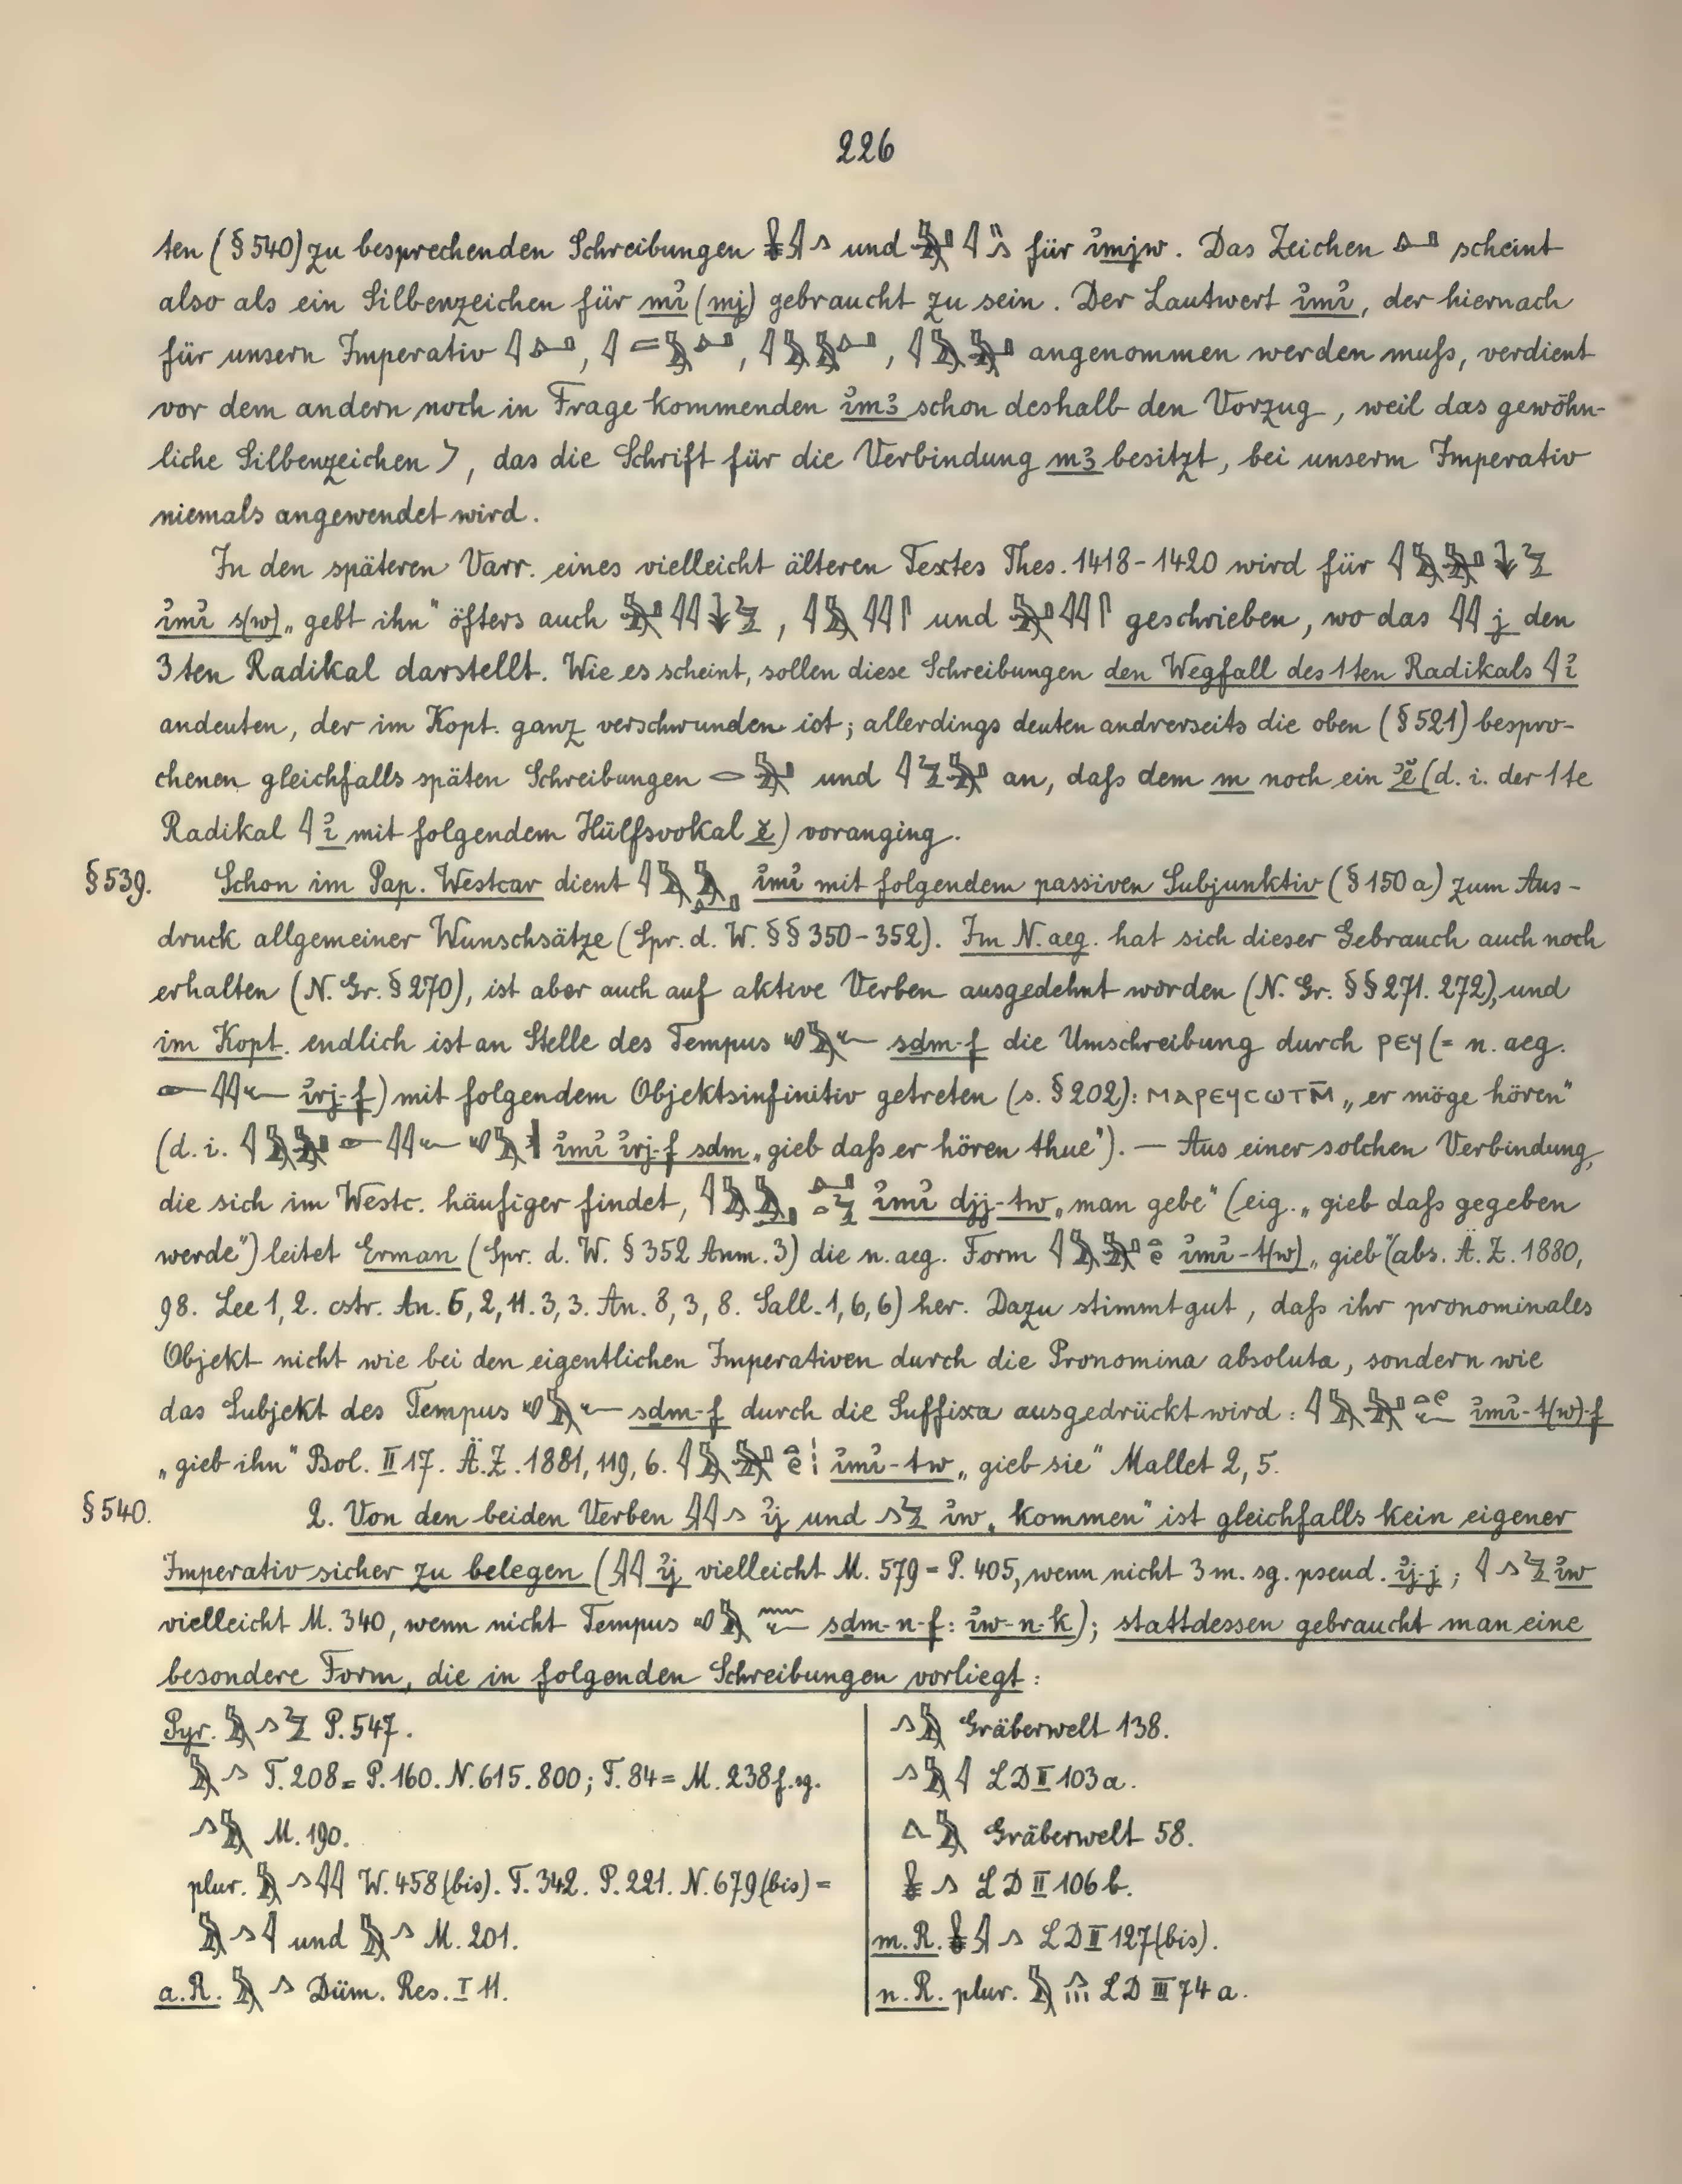 226
ten (§ 540) zu besprechenden Schreibungen und für ỉmjw. Das Zeichen scheint
also als ein Silbenzeichen für mỉ (mj) gebraucht zu sein. Der Lautwert ỉmỉ, der hiernach
für unsern Imperativ , , , angenommen werden muſs, verdient
vor dem andern noch in Frage kommenden ỉmꜣ schon deshalb den Vorzug, weil das gewöhn-
liche Silbenzeichen , das die Schrift für die Verbindung mꜣ besitzt, bei unserm Imperativ
niemals angewendet wird.
In den späteren Varr. eines vielleicht älteren Textes Thes. 1418-1420 wird für
ỉmỉ s(w) „gebt ihn" öfters auch , und geschrieben, wo das j den
3ten Radikal darstellt. Wie es scheint, sollen diese Schreibungen den Wegfall des 1ten Radikals ỉ
andeuten, der im Kopt. ganz verschwunden ist; allerdings deuten andrerseits die oben (§ 521) bespro-
chenen gleichfalls späten Schreibungen und an, daſs dem m noch ein ꜣĕ (d. i. der 1te
Radikal ỉ mit folgendem Hülfsvokal ĕ) voranging.
§ 539. Schon im Pap. Westcar dient ỉmỉ mit folgendem passiven Subjunktiv (§ 150 a) zum Aus-
druck allgemeiner Wunschsätze (Spr. d. W. §§ 350-352). Im N. aeg. hat sich dieser Gebrauch auch noch
erhalten (N. Gr. § 270), ist aber auch auf aktive Verben ausgedehnt worden (N. Gr. §§ 271. 272), und
im Kopt. endlich ist an Stelle des Tempus sḏm-f die Umschreibung durch ⲣⲉϥ (= n. aeg.
ỉrj-f) mit folgendem Objektsinfinitiv getreten (s. § 202): ⲙⲁⲣⲉϥⲥⲱⲧⲙ̄ „er möge hören"
(d. i. ỉmỉ ỉrj-f sḏm „gieb daſs er hören thue"). — Aus einer solchen Verbindung,
die sich im Westc. häufiger findet, ỉmỉ djj-tw „man gebe" (eig. „gieb daſs gegeben
werde") leitet Erman (Spr. d. W. § 352 Anm. 3) die n. aeg. Form ỉmỉ-t(w) „gieb" (abs. Ä. Z. 1880,
98. Lee 1, 2. cstr. An. 5, 2, 11. 3, 3. An. 8, 3, 8. Sall. 1, 6, 6) her. Dazu stimmt gut, daſs ihr pronominales
Objekt nicht wie bei den eigentlichen Imperativen durch die Pronomina absoluta, sondern wie
das Subjekt des Tempus sḏm-f durch die Suffixa ausgedrückt wird: ỉmỉ-t(w)-f
„gieb ihn" Bol. II 17. Ä. Z. 1881, 119, 6. ỉmỉ-tw „gieb sie" Mallet 2, 5.
§ 540. 2. Von den beiden Verben ỉj und ỉw „kommen" ist gleichfalls kein eigener
Imperativ sicher zu belegen ( ỉj vielleicht M. 579 = P. 405, wenn nicht 3 m. sg. pseud. ỉj-j; ỉw
vielleicht M. 340, wenn nicht Tempus sḏm-n-f: ỉw-n-k); stattdessen gebraucht man eine
besondere Form, die in folgenden Schreibungen vorliegt:
Pyr. P. 547.
T. 208 = P. 160. N. 615. 800; T. 84 = M. 238 f. sg.
M. 190.
plur. W. 458 (bis). T. 342. P. 221. N. 679 (bis) =
und M. 201.
a. R. Düm. Res. I 11.
Gräberwelt 138.
LD II 103 a.
Gräberwelt 58.
LD II 106 b.
m. R. LD II 127 (bis).
n. R. plur. LD III 74 a.